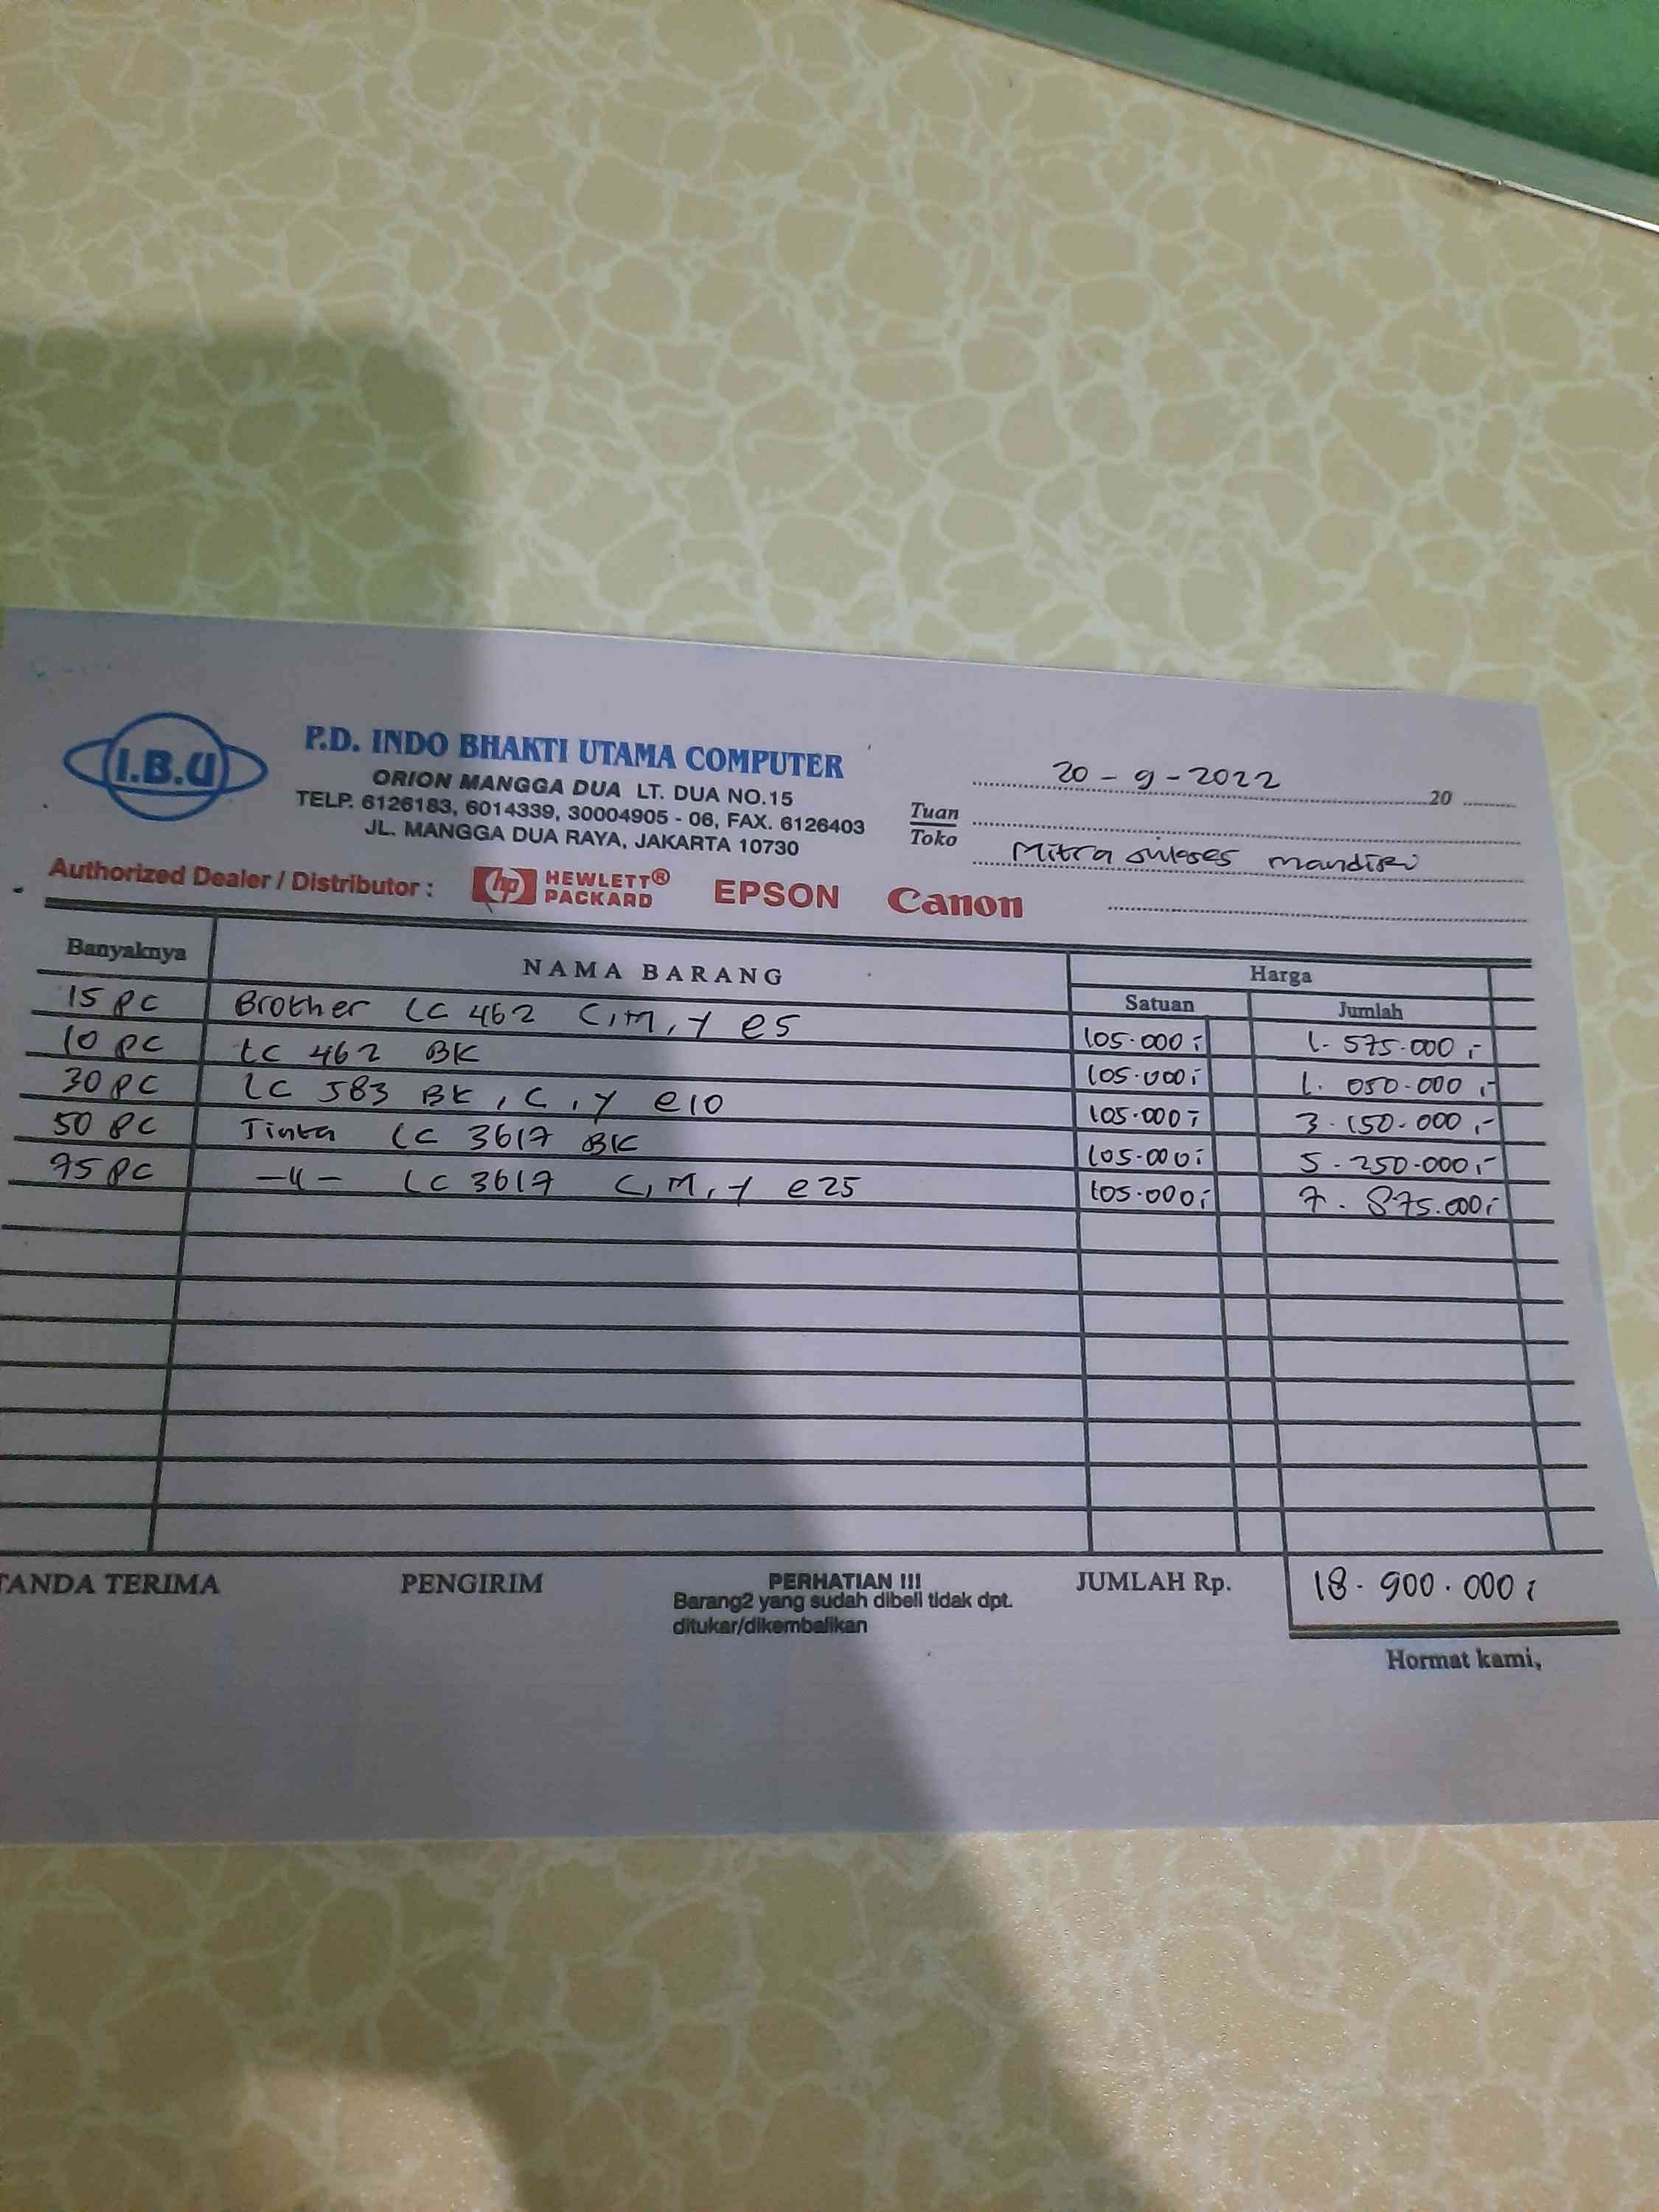 I.B.U
P.D. INDO BHAKTI UTAMA COMPUTER
ORION MANGGA DUA LT. DUA NO.15
TELP. 6126183, 6014339, 30004905 - 06, FAX. 6126403
JL. MANGGA DUA RAYA, JAKARTA 10730
20 - 9 - 2022 20
Tuan
Toko
Mitra sukses mandiri
Authorized Dealer / Distributor : hp HEWLETT® PACKARD EPSON Canon
Banyaknya NAMA BARANG Harga
Satuan Jumlah
15 PC Brother LC 462 C,M,Y @5 105.000,- 1.575.000,-
10 PC LC 462 BK 105.000,- 1.050.000,-
30 PC LC 583 BK, C, Y @10 105.000,- 3.150.000,-
50 PC Tinta LC 3617 BK 105.000,- 5.250.000,-
75 PC -"- LC 3617 C, M, Y @25 105.000,- 7.875.000,-
TANDA TERIMA PENGIRIM PERHATIAN !!! JUMLAH Rp. 18.900.000,-
Barang2 yang sudah dibeli tidak dpt.
ditukar/dikembalikan
Hormat kami,